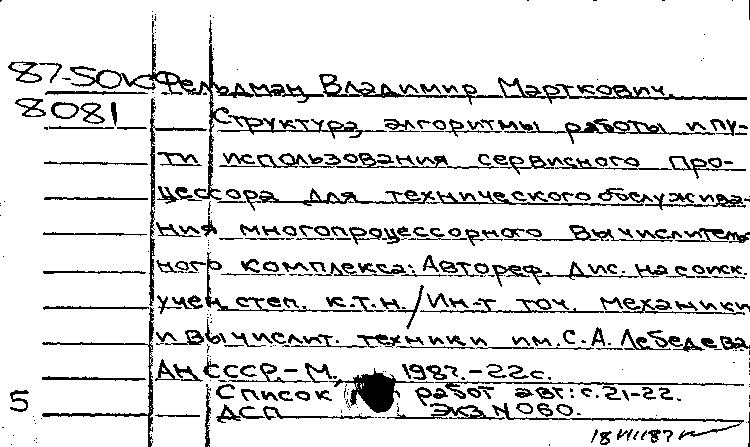 87-50к Фельдман, Владимир Марткович.
8081 Структура, алгоритмы работы и пу-
ти использования сервисного про-
цессора для технического обслужива-
ния многопроцессорного вычислитель-
ного комплекса: Автореф. дис. на соиск.
учен. степ. к.т.н. / Ин-т точ. механики
и вычислит. техники им. С.А. Лебедева
АН СССР. - М., 1987. - 22 с.
Список работ авт.: с. 21-22.
5 ДСП Экз N 060.
18 VII 87